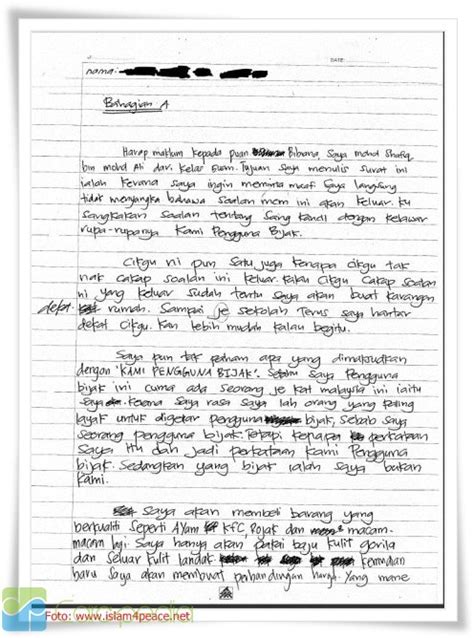 DATE:
nama:
Bahagian A
Harap maklum kepada puan Bibiana, Saya mohd Shafiq
bin mohd Ali dari kelas enam. Tujuan saya menulis surat ini
ialah kerana saya ingin meminta maaf. Saya langsung
tidak menyangka bahawa soalan mcm ini akan keluar. ku
sangkakan soalan tentang Sang kancil dengan kelawar
rupa-rupanya Kami Pengguna Bijak.
Cikgu ni pun Satu juga kenapa cikgu tak
nak cakap soalan ini keluar. Kalau Cikgu Cakap soalan
ni yang keluar sudah tentu saya akan buat karangan
dekt rumah. Sampai je sekolah Terus saya hantar
dekat Cikgu. Kan lebih mudah kalau begitu.
Saya pun tak paham apa yang dimaksudkan
dengan 'KAMI PENGGUNA BIJAK'. Saya Pengguna
bijak ini cuma ada seorang je kat malaysia ini iaitu
saya. Kerana Saya rasa Saya lah orang yang paling
layak untuk digelar pengguna bijak, Sebab saya
seorang pengguna bijak. Tetapi kenapa perkataan
Saya itu dah jadi perkataan Kami Pengguna
bijak. Sedangkan yang bijak ialah saya bukan
kami.
Saya akan membeli barang yang
berkualiti seperti Ayam KFC Rojak dan macam-
macam lagi. Saya hanya akan pakai baju kulit gorila
dan seluar kulit landak kemudian
baru saya akan membuat perbandingan harga. Yang mane
Foto: www.islam4peace.net